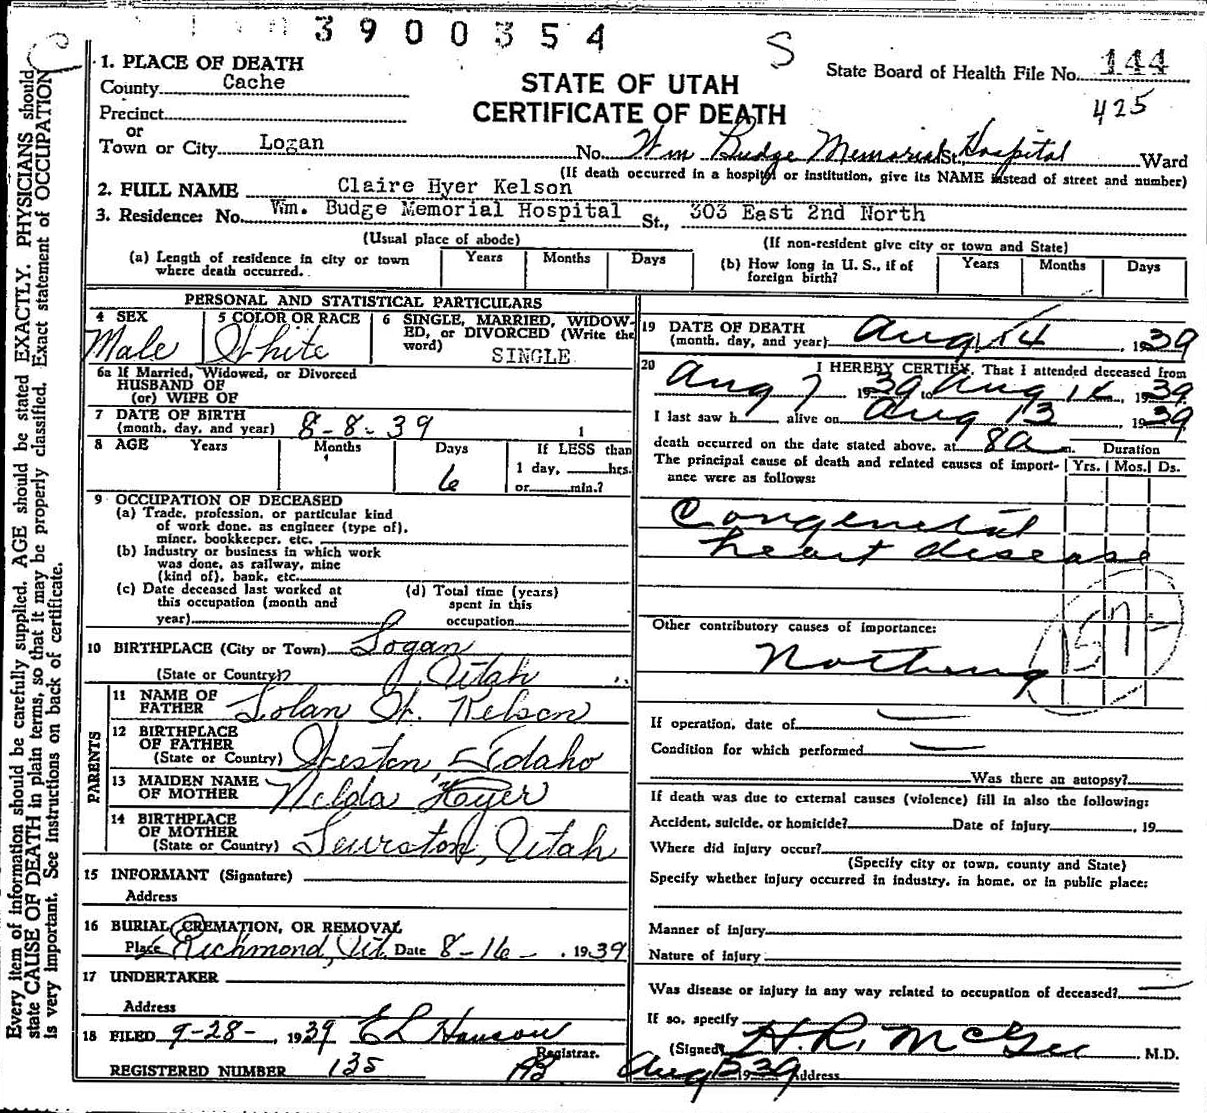 3900354
S
State Board of Health File No. 144
425
STATE OF UTAH
CERTIFICATE OF DEATH
1. PLACE OF DEATH
County Cache
Precinct
or
Town or City Logan No. Wm Budge Memorial St. Hospital Ward
(If death occurred in a hospital or institution, give its NAME instead of street and number)
2. FULL NAME Claire Hyer Kelson
3. Residence: No. Wm. Budge Memorial Hospital St., 303 East 2nd North
(Usual place of abode) (If non-resident give city or town and State)
(a) Length of residence in city or town where death occurred. Years Months Days
(b) How long in U. S., if of foreign birth? Years Months Days
PERSONAL AND STATISTICAL PARTICULARS
4 SEX Male
5 COLOR OR RACE White
6 SINGLE, MARRIED, WIDOW-
ED, or DIVORCED (Write the
word) SINGLE
6a If Married, Widowed, or Divorced
HUSBAND OF
(or) WIFE OF
7 DATE OF BIRTH
(month, day, and year) 8-8-39 1
8 AGE Years Months Days If LESS than
6 1 day, hrs.
or min.?
9 OCCUPATION OF DECEASED
(a) Trade, profession, or particular kind
of work done, as engineer (type of),
miner, bookkeeper, etc.
(b) Industry or business in which work
was done, as railway, mine
(kind of), bank, etc.
(c) Date deceased last worked at
this occupation (month and
year)
(d) Total time (years)
spent in this
occupation
10 BIRTHPLACE (City or Town) Logan
(State or Country) Utah
PARENTS
11 NAME OF
FATHER Lolan W. Kelson
12 BIRTHPLACE
OF FATHER
(State or Country) Weston Idaho
13 MAIDEN NAME
OF MOTHER Nelda Hyer
14 BIRTHPLACE
OF MOTHER
(State or Country) Lewiston, Utah
15 INFORMANT (Signature)
Address
16 BURIAL, CREMATION, OR REMOVAL
Place Richmond, Ut. Date 8-16-, 1939
17 UNDERTAKER
Address
18 FILED 9-28-, 1939 E L Hanson
Registrar.
REGISTERED NUMBER 135
19 DATE OF DEATH
(month, day, and year) Aug 14, 1939
20 I HEREBY CERTIFY, That I attended deceased from
Aug 7 1939 to Aug 14, 1939
I last saw h alive on Aug 13 1939
death occurred on the date stated above, at 8a m. Duration
The principal cause of death and related causes of import-
ance were as follows: Yrs. Mos. Ds.
Congenital
heart disease
157
Other contributory causes of importance:
Nothing
If operation, date of
Condition for which performed
Was there an autopsy?
If death was due to external causes (violence) fill in also the following:
Accident, suicide, or homicide? Date of injury , 19
Where did injury occur?
(Specify city or town, county and State)
Specify whether injury occurred in industry, in home, or in public place:
Manner of injury
Nature of injury
Was disease or injury in any way related to occupation of deceased?
If so, specify
(Signed) H. R. McGee, M.D.
Aug 1939 Address
Every item of information should be carefully supplied. AGE should be stated EXACTLY. PHYSICIANS should
state CAUSE OF DEATH in plain terms, so that it may be properly classified. Exact statement of OCCUPATION
is very important. See instructions on back of certificate.